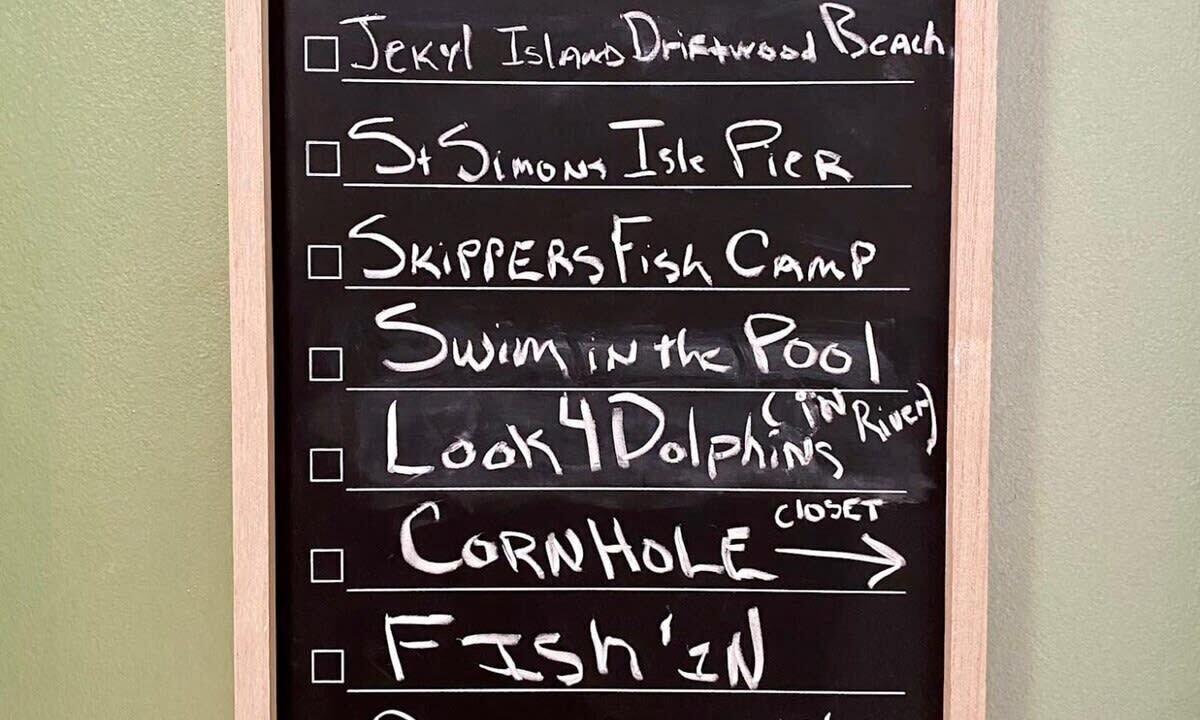 Jekyl Island Driftwood Beach
St Simons Isle Pier
Skippers Fish Camp
Swim in the Pool
Look 4 Dolphins (in River)
CORNHOLE CLOSET →
Fish'in